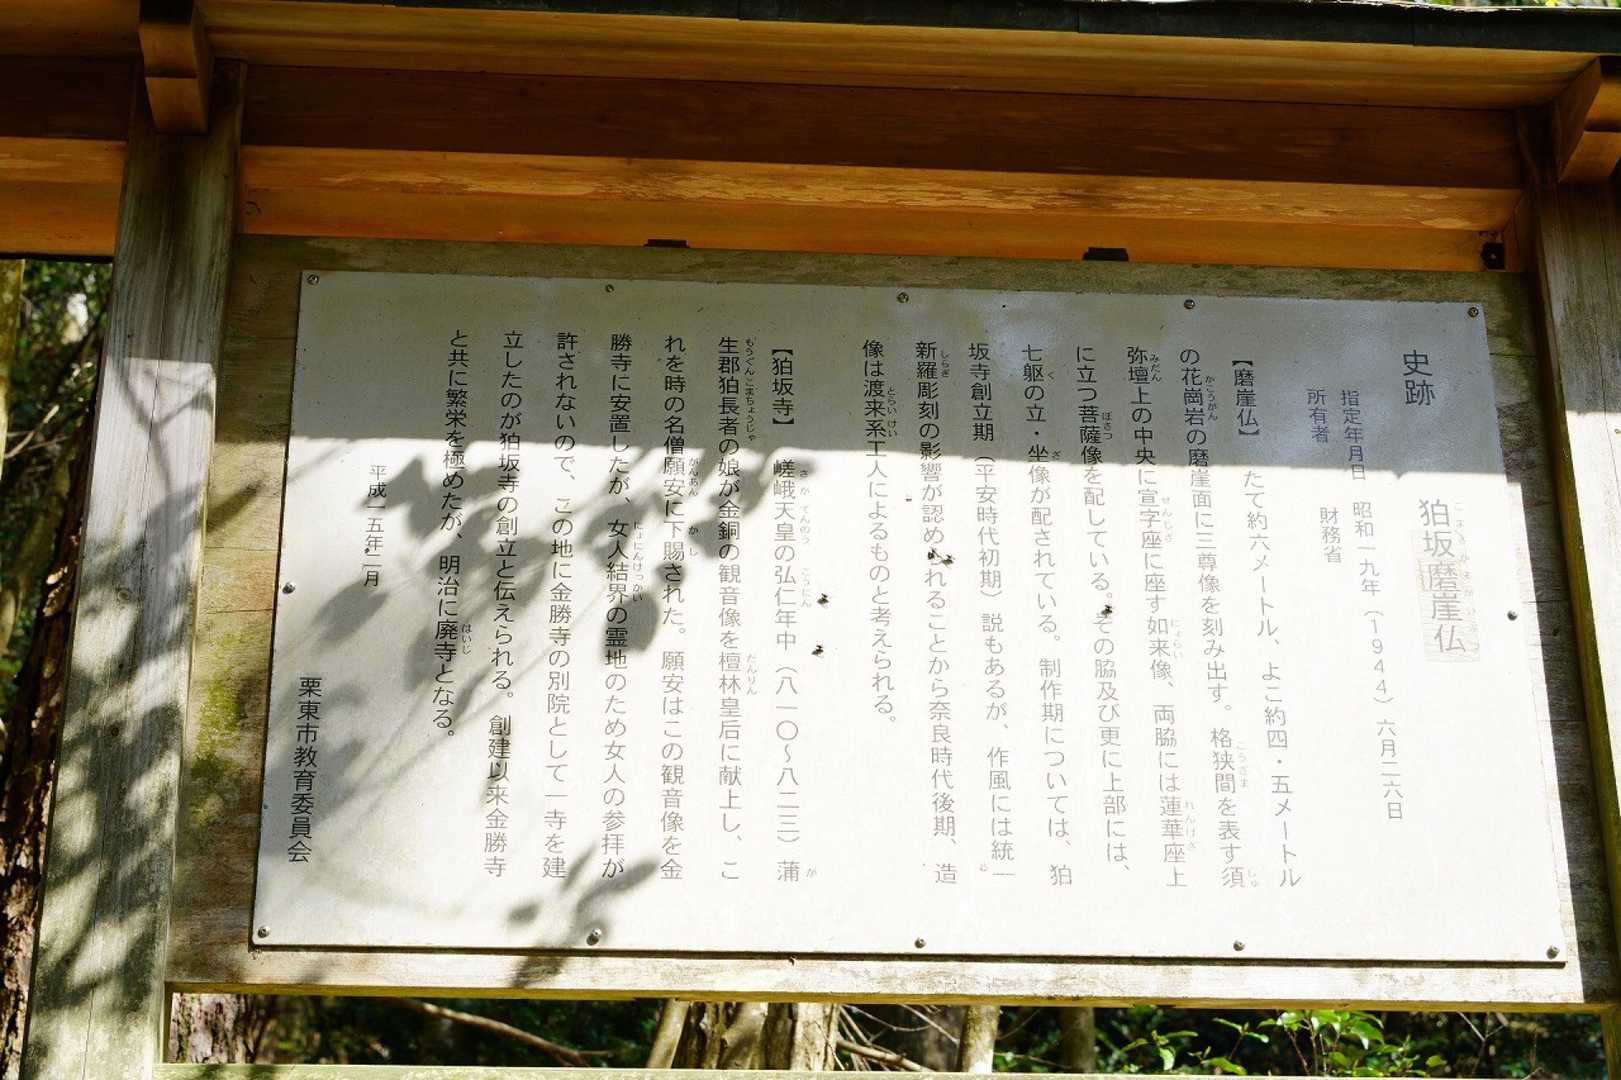 史跡　狛坂磨崖仏
こまさかまがいぶつ
指定年月日　昭和一九年（1944）六月二六日
所有者　財務省
【磨崖仏】　たて約六メートル、よこ約四・五メートル
の花崗岩の磨崖面に三尊像を刻み出す。格狭間を表す須
かこうがん　こうざま　しゅ
弥壇上の中央に宣字座に座す如来像、両脇には蓮華座上
みだん　せんじざ　にょらい　れんげざ
に立つ菩薩像を配している。その脇及び更に上部には、
ぼさつ
七躯の立・坐像が配されている。制作期については、狛
く　ざ
坂寺創立期（平安時代初期）説もあるが、作風には統一
新羅彫刻の影響が認められることから奈良時代後期、造
しらぎ
像は渡来系工人によるものと考えられる。
とらいけい
【狛坂寺】　嵯峨天皇の弘仁年中（八一〇～八二三）蒲
さがてんのう　こうにん　が
生郡狛長者の娘が金銅の観音像を檀林皇后に献上し、こ
もうぐんこまちょうじゃ　だんりん
れを時の名僧願安に下賜された。願安はこの観音像を金
がんあん　かし
勝寺に安置したが、女人結界の霊地のため女人の参拝が
にょにんけっかい
許されないので、この地に金勝寺の別院として一寺を建
立したのが狛坂寺の創立と伝えられる。創建以来金勝寺
と共に繁栄を極めたが、明治に廃寺となる。
はいじ
平成一五年二月
栗東市教育委員会